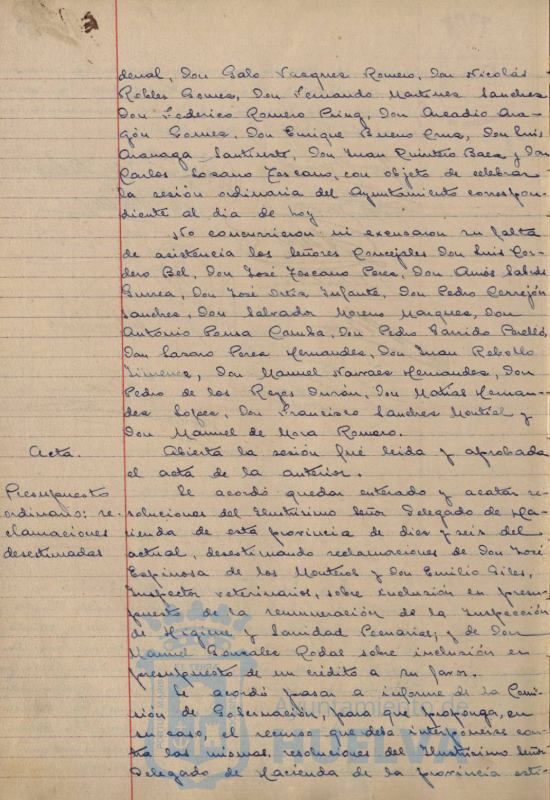 denal, Don Galo Vazquez Romero, Don Nicolás
Robles Gomez, Don Fernando Martinez Sanchez
Don Federico Romero Pring, Don Arcadio Ara-
gón Gomez, Don Enrique Bueno Cruz, Don Luis
Aranaga Santiuste, Don Juan Quintero Baez y Don
Carlos Lozano Toscano, con objeto de celebrar
la sesión ordinaria del Ayuntamiento correspon-
diente al dia de hoy
No concurrieron ni excusaron su falta
de asistencia los señores Concejales Don Luis Cor-
dero Bel, Don José Toscano Perez, Don Amós Sabrás
Gurrea, Don José Ortiz Infante, Don Pedro Cerrejón
Sanchez, Don Salvador Moreno Marquez, Don
António Pousa Camba, Don Pedro Garrido Perelló,
Don Lazaro Perez Hernandez, Don Juan Rebollo
Jimenez, Don Manuel Narvaez Hernandez, Don
Pedro de los Reyes Durán, Don Matías Hernan-
dez Lopez, Don Francisco Sanchez Montiel y
Don Manuel de Mora Romero.
Acta.
Abierta la sesión fué leida y aprobada
el acta de la anterior.
Presupuesto
ordinario: re-
clamaciones
desestimadas
Se acordó quedar enterado y acatar re-
soluciones del Ilustrísimo Señor Delegado de Ha-
cienda de esta provincia de diez y seis del
actual, desestimando reclamaciones de Don José
Espinosa de los Monteros y Don Emilio Giles,
Inspector veterinarios, sobre inclusión en presu-
puesto de la remuneración de la Inspección
de Higiene y Sanidad Pecuarias; y de Don
Manuel Gonzalez Rodal sobre inclusión en
presupuesto de un crédito a su favor.
Se acordó pasar a informe de la Comi-
sión de Gobernación, para que proponga, en
su caso, el recurso que deba interponerse con-
tra las mismas, resoluciones del Ilustrísimo Señor
Delegado de Hacienda de la provincia esti-
Ayuntamiento de
HUELVA